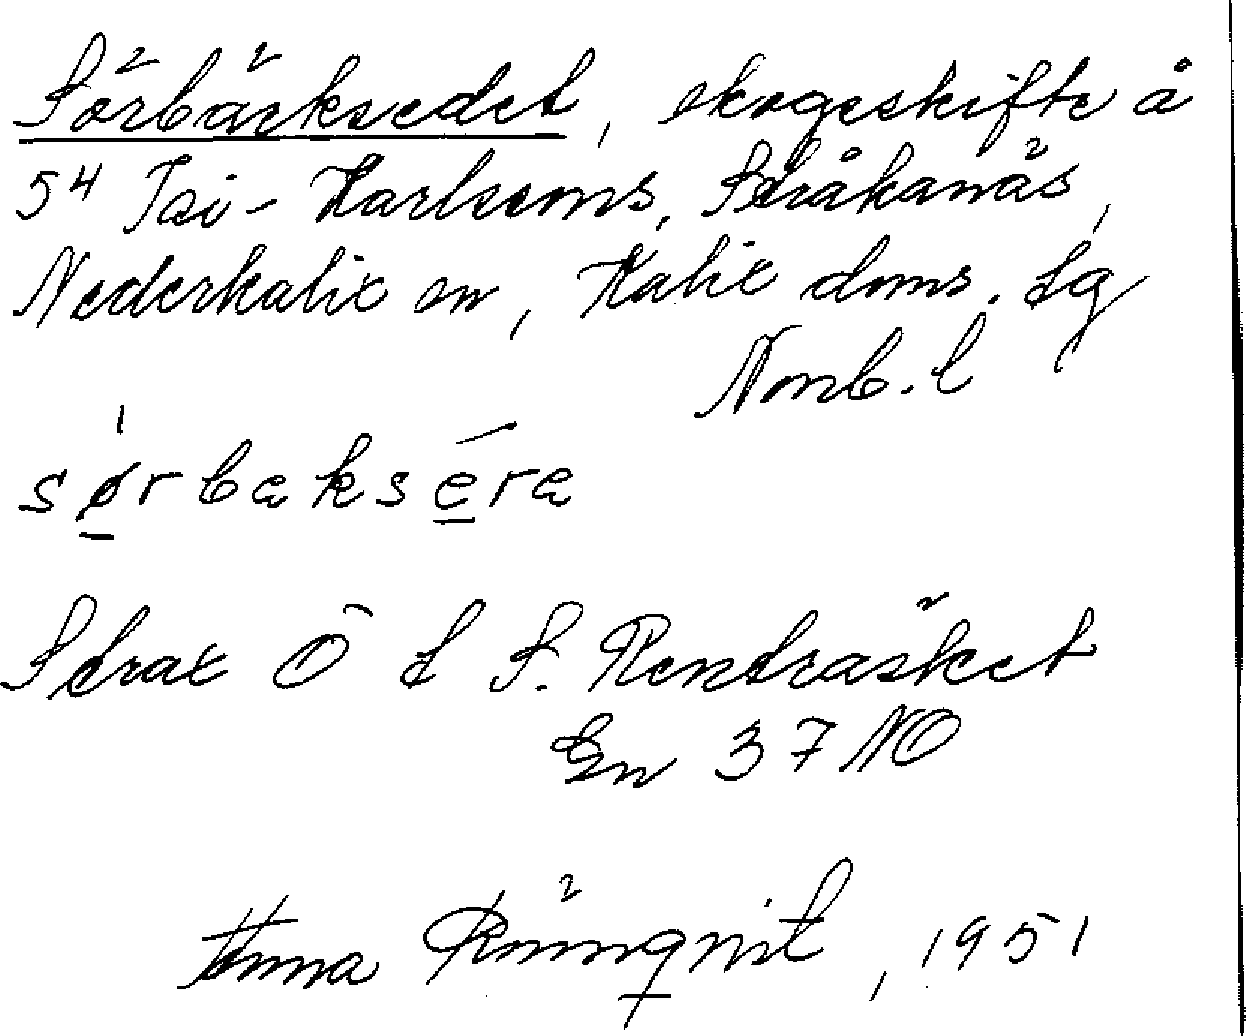 Sörbäcksedet, skogsskifte å
54 Isi-Karlssons, Stråkanäs,
Nederkalix sn, Kalix doms. lg
Nonb. l
sørbækseræ
Strax Ö t S. Rendträsket
Gn 37 NO
Anna Rönnqvist, 1951